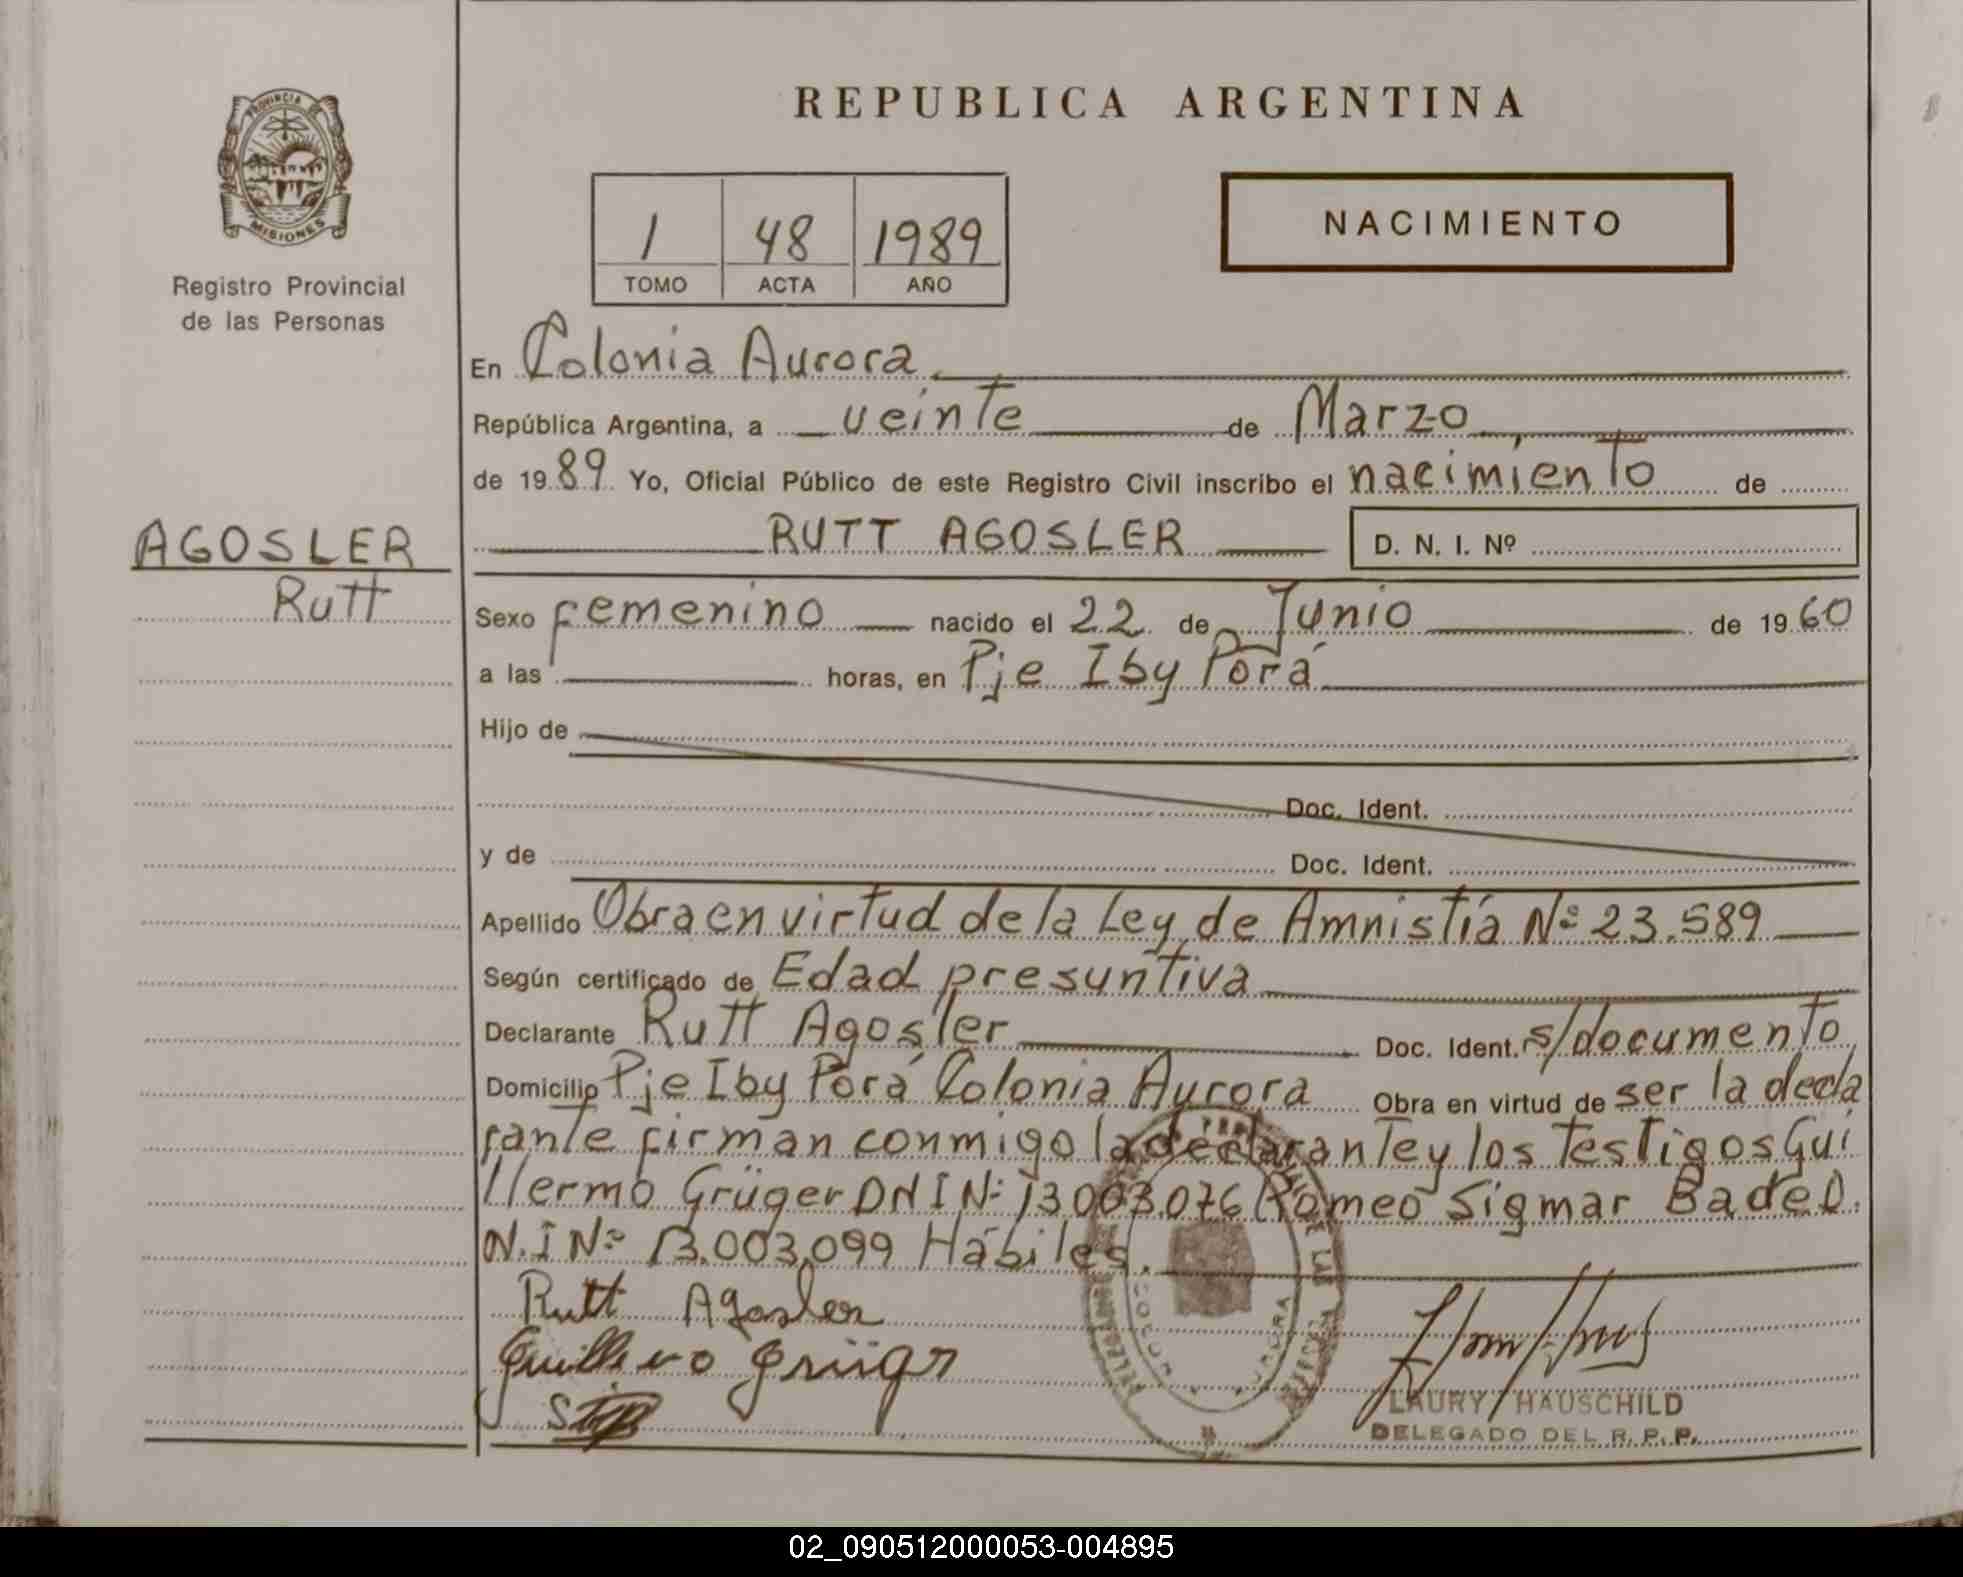 REPUBLICA ARGENTINA
PROVINCIA DE
MISIONES
Registro Provincial
de las Personas
1 48 1989
TOMO ACTA AÑO
NACIMIENTO
En Colonia Aurora
República Argentina, a veinte de Marzo
de 1989 Yo, Oficial Público de este Registro Civil inscribo el nacimiento de
AGOSLER
Rutt
RUTT AGOSLER D. N. I. Nº
Sexo femenino nacido el 22 de Junio de 1960
a las horas, en Pje Iby Porá
Hijo de
Doc. Ident.
y de Doc. Ident.
Apellido Obra en virtud de la Ley de Amnistía Nº 23.589
Según certificado de Edad presuntiva
Declarante Rutt Agosler Doc. Ident. s/documento
Domicilio Pje Iby Porá Colonia Aurora Obra en virtud de ser la decla
rante firman conmigo la declarante y los testigos Gui
llermo Grüger DNI Nº 13.003.076 Romeo Sigmar Bade D.
N.I Nº 13.003.099 Hábiles.
Rutt Agosler
Guillermo Grüger
LAURY HAUSCHILD
DELEGADO DEL R. P. P.
02_090512000053-004895